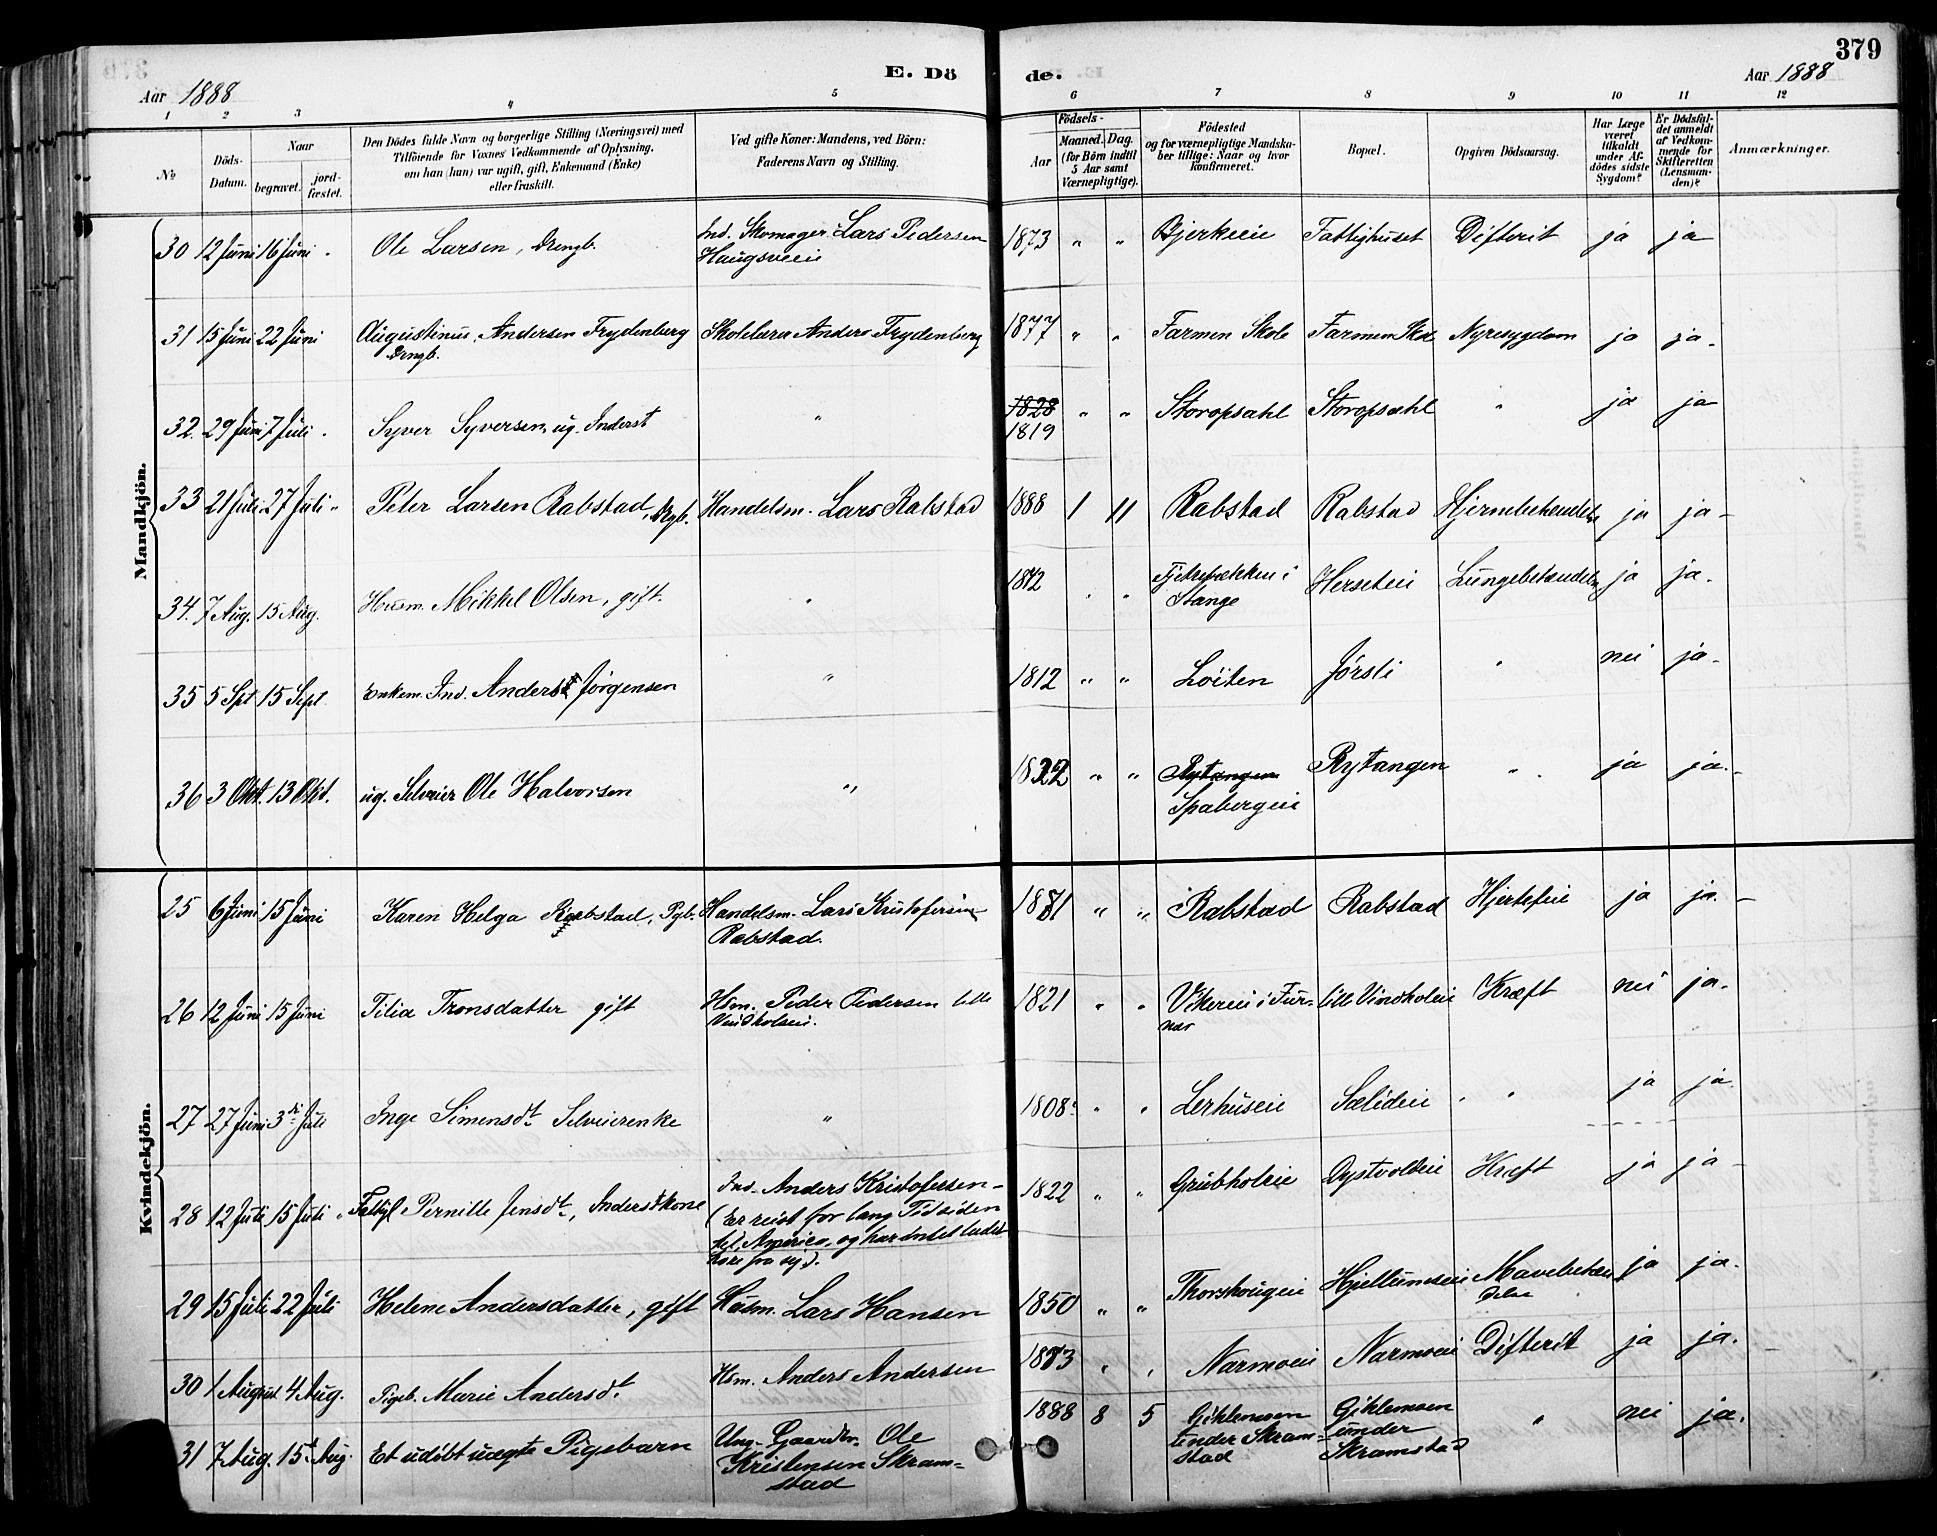 379
E. Dö
de.
Aar 1888
Aar 1888
1 2 3 4 5 6 7 8 9 10 11 12
No
Döds-Datum.
Naar
begravet.
jord-fæstet.
Den Dödes fulde Navn og borgerlige Stilling (Næringsvei) med
Tilföiende for Voxnes Vedkommende af Oplysning,
om han (hun) var ugift, gift, Enkemand (Enke)
eller fraskilt.
Ved gifte Koner: Mandens, ved Börn:
Faderens Navn og Stilling.
Födsels-
Aar
Maaned. Dag.
(for Börn indtil
5 Aar samt
Værnepligtige).
Födested
og for værnepligtige Mandska-
ber tillige: Naar og hvor
konfirmeret.
Bopæl.
Opgiven Dödsaarsag.
Har Læge
været
tilkaldt
under Af-
dödes sidste
Sygdom?
Er Dödsfal-
det anmeldt
af Vedkom-
mende for
Skifteretten
(Lensman-
den)?
Anmærkninger.
Mandkjön.
30 12 Juni 16 Juni " Ole Larsen, Drengb. Ind. Skomager Lars Pedersen 1873 " " Bjerkeeie Fattighuset Difterit ja ja
Haugsveeie
31 15 Juni 22 Juni Augustinus Andersen Frydenberg Skolelærer Anders Frydenberg 1877 " " Farmen Skole Farmen Skole Nyresygdom ja ja.
Drengb.
32. 29 Juni 7 Juli " Syver Syversen, ug. Inderst " 1828 " " Storopsahl Storopsahl " ja ja
1819
33 21 Juli 27 Juli " Peter Larsen Rabstad, Drgb. Handelsm. Lars Rabstad 1888 1 11 Rabstad Rabstad Hjernebetændelse ja ja
34. 7 Aug. 15 Aug. Husm. Mikkel Olsen, gift. " 1812 " " i Herseteie Lungebetændelse ja ja.
Stange
35 5 Spt 15 Sept Enkem. Ind. Anders Jørgensen " 1812 " " Löiten Jørsli " nei ja.
36 3 Okt. 13 Okt. ug. Selveier Ole Halvorsen " 1822 " " Rytangen Rytangen " ja ja.
Spabergeie
Kvindekjön.
25 6 Juni 15 Juni Karen Helga Rabstad, Pgb. Handelsm. Lars Kristofersen 1881 " " Rabstad Rabstad Hjertefeil ja ja.
Rabstad.
26 12 Juni 15 Juni Tilia Tronsdatter gift Hsm. Peder Pedersen lille 1821 " " Vikereie i Fur- lille Vindholeie Kræft nei ja.
Vindholseie. nes
27 27 Juni 3di Juli Inge Simensdt. Selveierenke " 1808. " " Lerhuseie Sælideie " ja ja
28 12 Juli 15 Juli " Fattigl. Pernille Jensdt., Inderstkone Ind. Anders Kristofersen 1822 " " Grubholeie Dystvoldeie Kræft ja ja
(Er reist for lang Tid siden
til America, og har intet ladet
høre fra sig).
29 15 Juli 22 Juli Helene Andersdatter, gift Husm. Lars Hansen 1850 " " Thorshougeie Hjellumseie Mavebetæn- ja ja.
delse
30 1 August 4 Aug. Pigeb. Marie Andersdt. Hsm. Anders Andersen 1883 " " Narmoeie Narmoeie Difterit ja ja.
31 7 Aug. 15 Aug. Et udöbt uægte Pigebarn Ung. Gaardbr. Ole 1888 8 5 Gihlemoen Gihlemoen " nei ja.
Kristensen Skram- under Skram- under
stad stad Skramstad